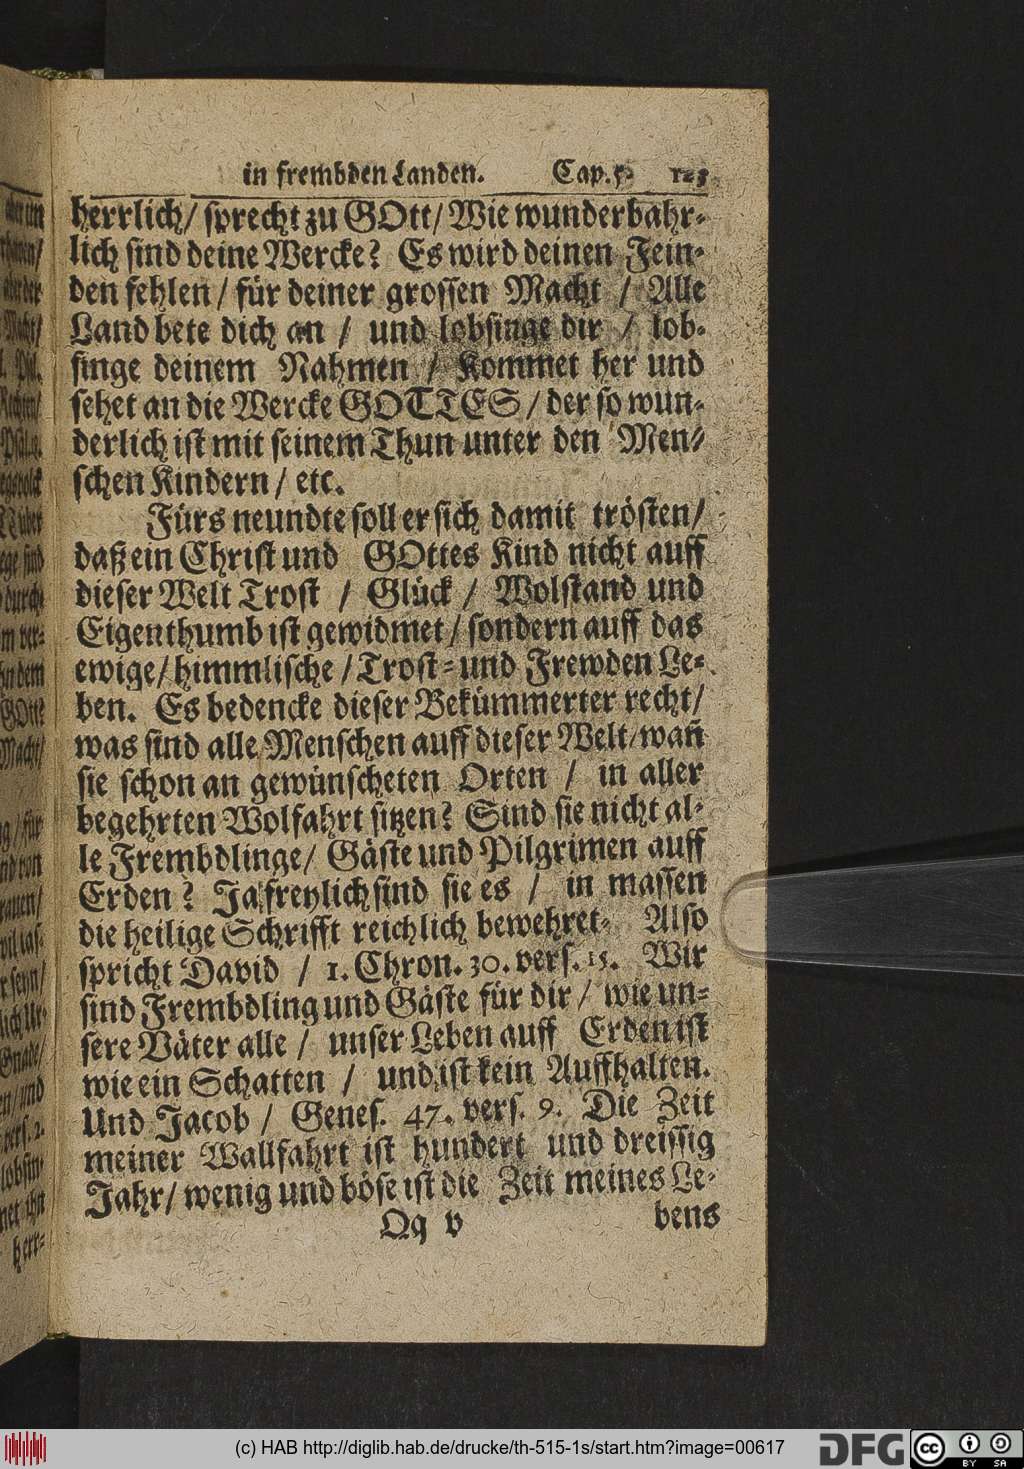 in frembden Landen. Cap. 5. 123
herrlich/ sprecht zu GOtt/ Wie wunderbahr-
lich sind deine Wercke? Es wird deinen Fein-
den fehlen / für deiner grossen Macht / Alle
Land bete dich an / und lobsinge dir / lob-
singe deinem Nahmen / Kommet her und
sehet an die Wercke GOTTES / der so wun-
derlich ist mit seinem Thun unter den Men-
schen Kindern / etc.
Fürs neundte soll er sich damit trösten/
daß ein Christ und GOttes Kind nicht auff
dieser Welt Trost / Glück / Wolstand und
Eigenthumb ist gewidmet / sondern auff das
ewige/ himmlische / Trost- und Frewden Le-
ben. Es bedencke dieser Bekümmerter recht/
was sind alle Menschen auff dieser Welt/ wañ
sie schon an gewünscheten Orten / in aller
begehrten Wolfahrt sitzen? Sind sie nicht al-
le Frembdlinge/ Gäste und Pilgrimen auff
Erden? Ja freylich sind sie es / in massen
die heilige Schrifft reichlich bewehret. Also
spricht David / 1. Chron. 30. vers. 15. Wir
sind Frembdling und Gäste für dir / wie un-
sere Väter alle / unser Leben auff Erden ist
wie ein Schatten / und ist kein Auffhalten.
Und Jacob / Genes. 47. vers. 9. Die Zeit
meiner Wallfahrt ist hundert und dreissig
Jahr/ wenig und böse ist die Zeit meines Le-
Qq v bens
(c) HAB http://diglib.hab.de/drucke/th-515-1s/start.htm?image=00617
DFG
CC BY SA